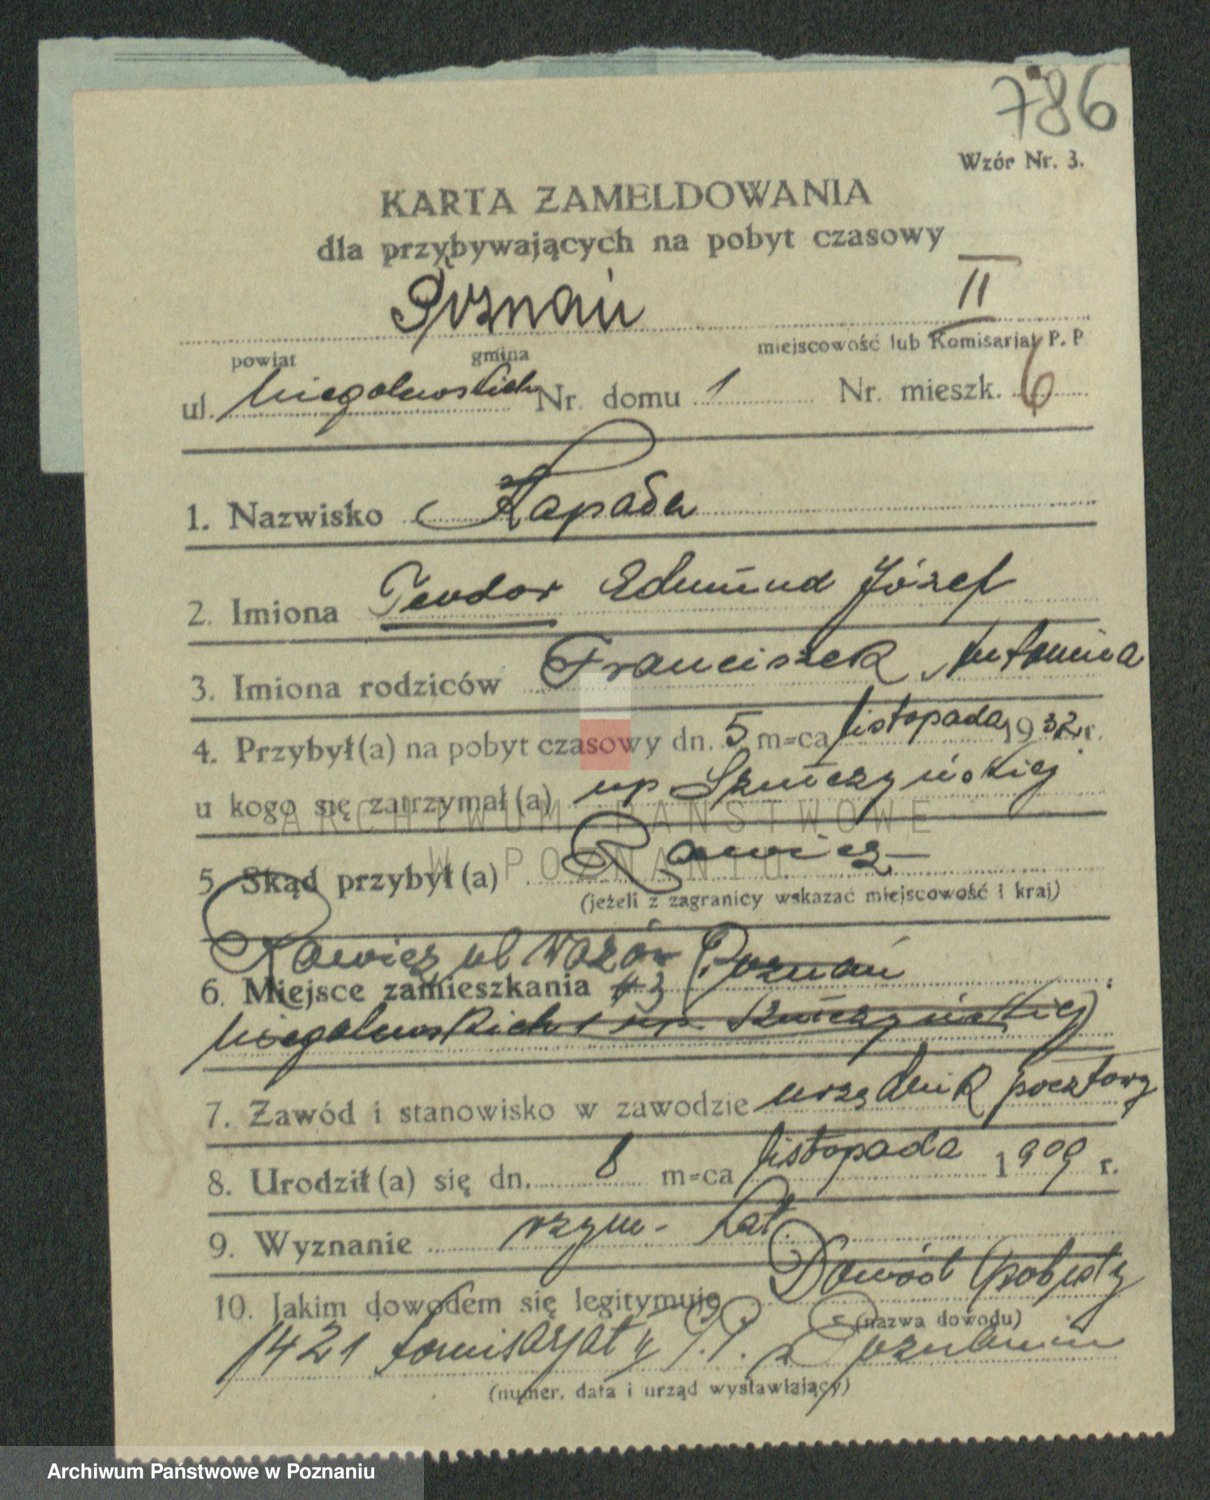 786
Wzór Nr. 3.
KARTA ZAMELDOWANIA
dla przybywających na pobyt czasowy
Poznań II
powiat gmina miejscowość lub Komisariat P. P.
ul. Niegolewskich Nr. domu 1 Nr. mieszk. 6
1. Nazwisko Kapała
2. Imiona Teodor Edmund Józef
3. Imiona rodziców Franciszek Antonina
4. Przybył(a) na pobyt czasowy dn. 5 m-ca listopada 1932 r.
u kogo się zatrzymał(a) up
ARCHIWUM PAŃSTWOWE
W POZNANIU
5. Skąd przybył(a) Rawicz
(jeżeli z zagranicy wskazać miejscowość i kraj)
Rawicz ul Wazów Poznań
6. Miejsce zamieszkania # 3
Niegolewskich 1 up.
7. Zawód i stanowisko w zawodzie urzędnik pocztowy
8. Urodził(a) się dn. 8 m-ca listopada 1909 r.
9. Wyznanie rzym- kat.
10. Jakim dowodem się legitymuje Dowód osobisty
(nazwa dowodu)
1421 komisarjat P.P. Poznaniu
(numer, data i urząd wystawiający)
Archiwum Państwowe w Poznaniu